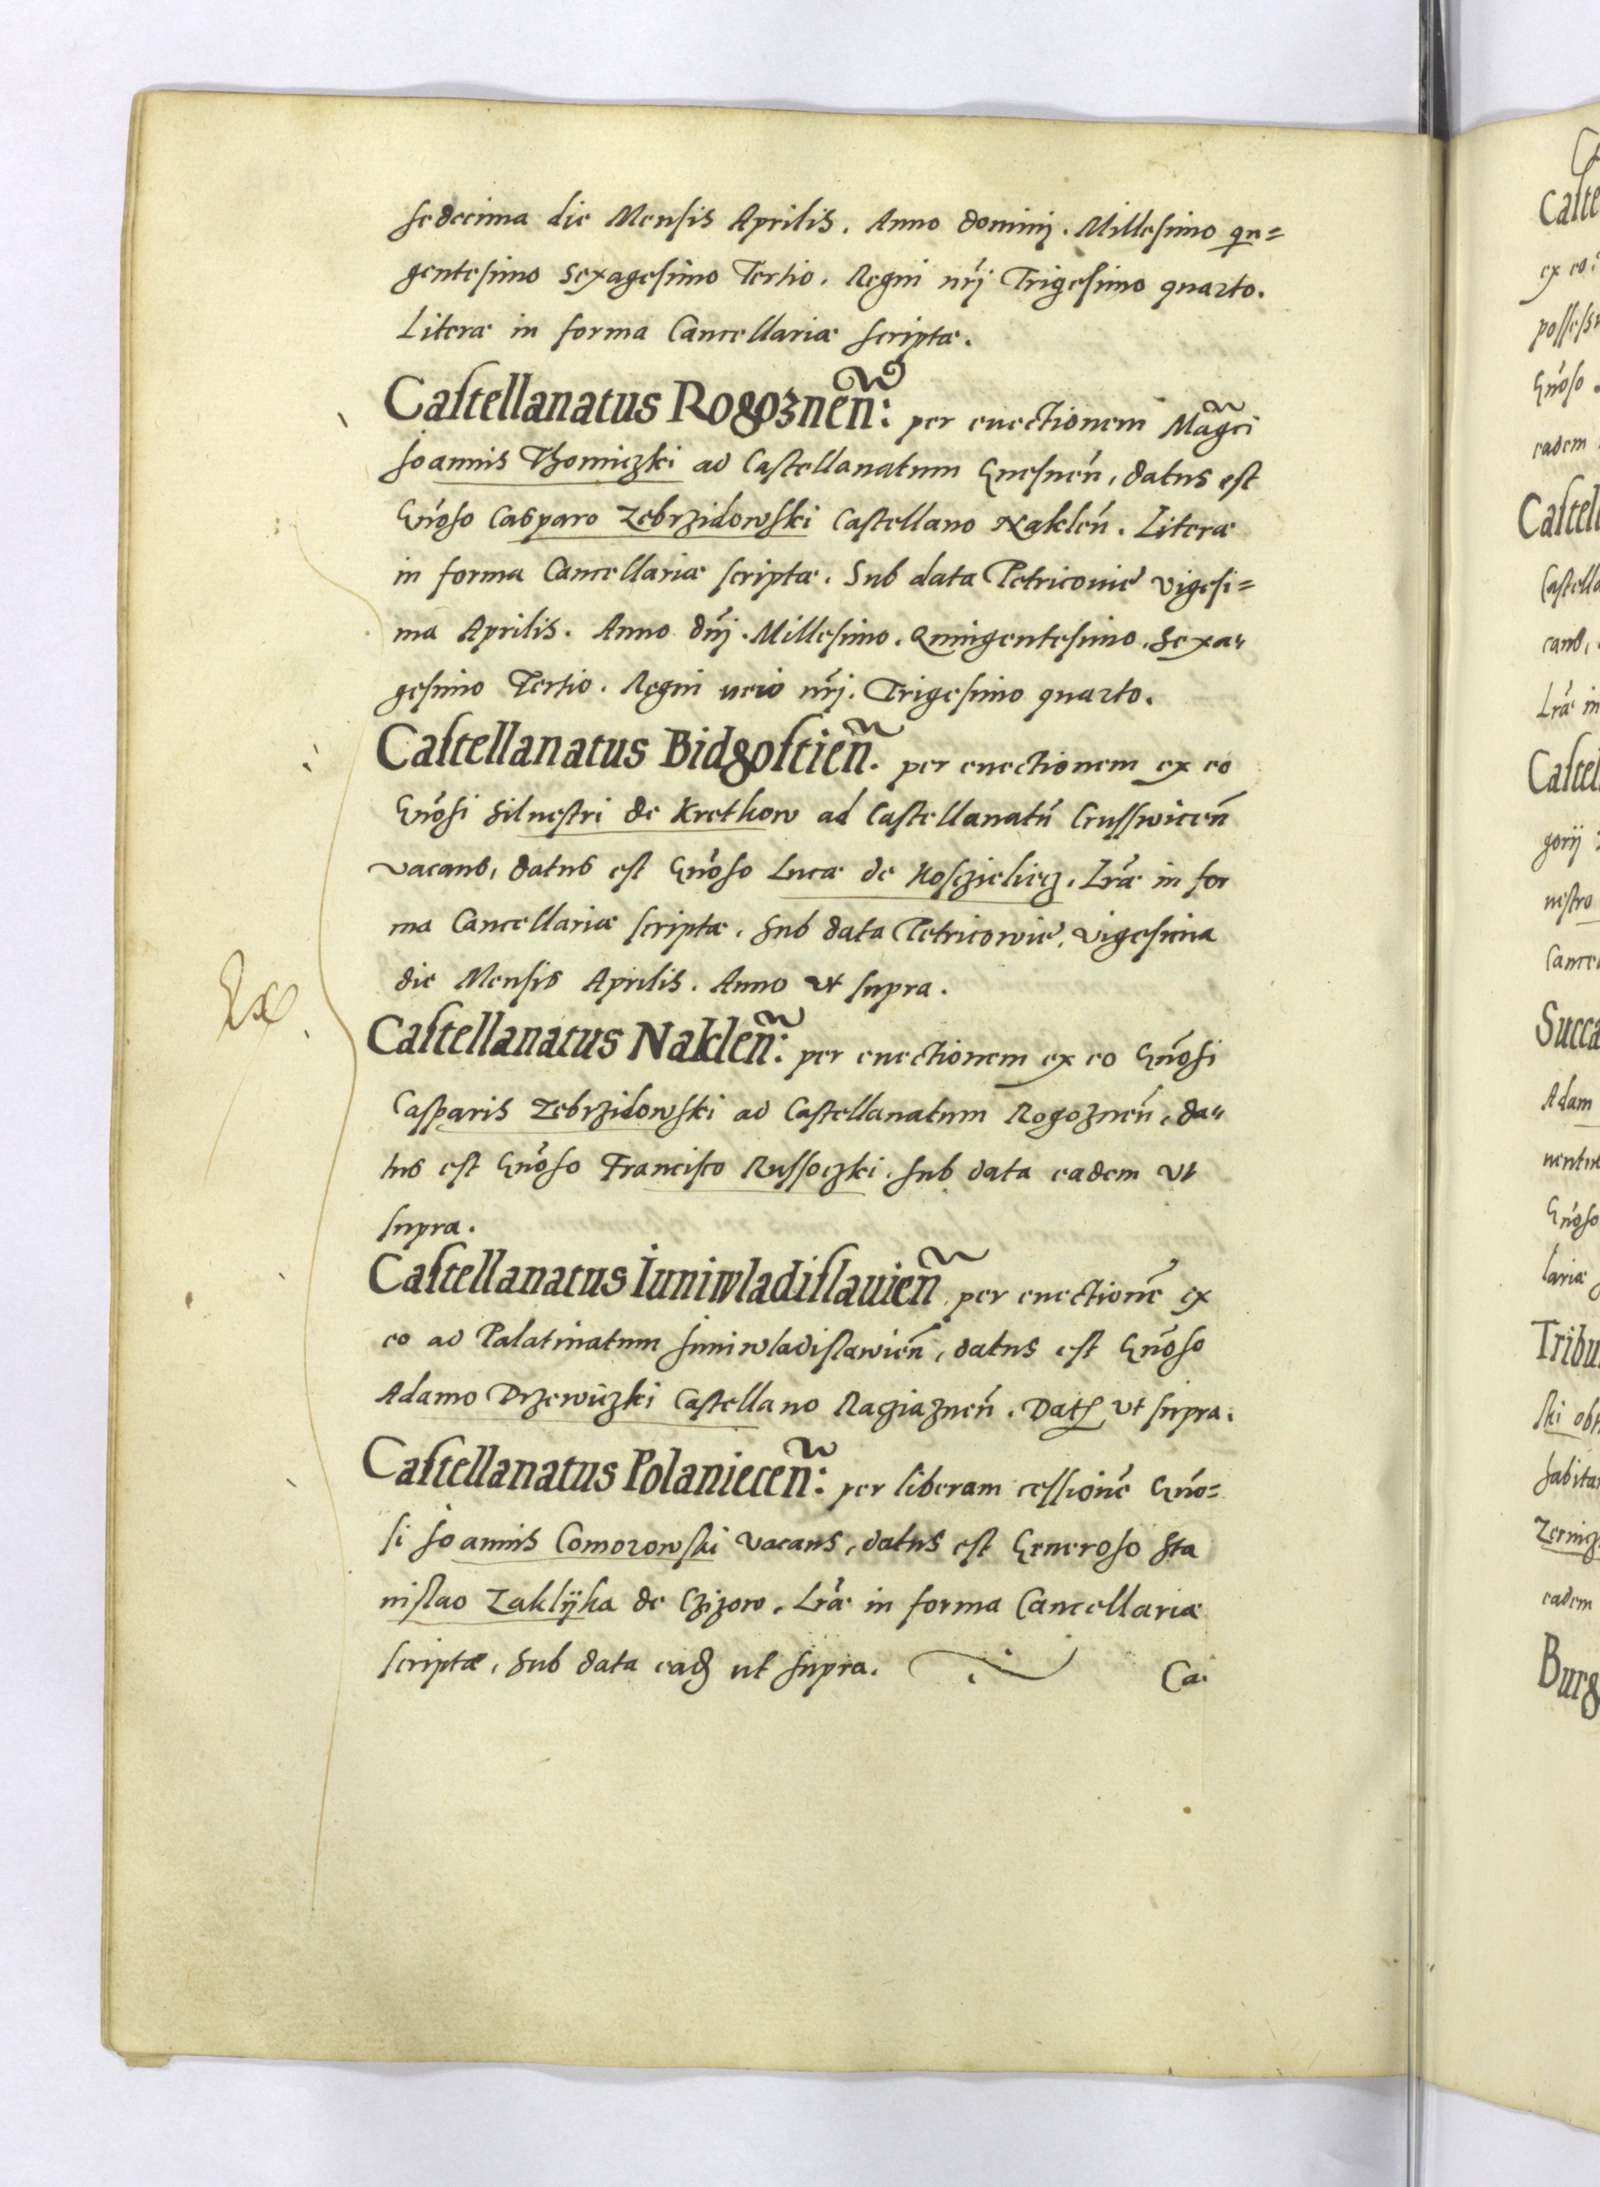 sedecima die Mensis Aprilis. Anno dominj. Millesimo qn=
gentesimo Sexagesimo Tertio. Regni nrj̃ Trigesimo quarto.
Literæ in forma Cancellariæ scriptæ.
Castellanatus Rogoznen̄: per euectionem Magc̃i
Joannis Thomiczki ad Castellanatum Gnesnen̄, datus est
Gn̄oso Casparo Zebrzidowski Castellano Naklen̄. Literæ
in forma Cancellariæ scriptæ. Sub data Petricouiẽ vigesi=
ma Aprilis. Anno dn̄j. Millesimo. Quingentesimo. Sexa=
gesimo Tertio. Regni uero nrj̃. Trigesimo quarto.
Castellanatus Bidgostien̄. per euectionem ex eo
Gn̄osi Siluestri de Krethow ad Castellanatū Crusswicen̄
vacans, datus est Gn̄oso Lucæ de Kosczieliecz. Lrãe in for
ma Cancellariæ scriptæ. Sub data Petricowiẽ, vigesima
die Mensis Aprilis. Anno vt supra.
Castellanatus Naklen̄: per euectionem ex eo Gn̄osi
Casparis Zebrzidowski ad Castellanatum Rogoznen̄, da=
tus est Gn̄oso Francisco Russoczki. Sub data eadem vt
supra.
Castellanatus Iuniwladislauien̄ per euectionẽ ex
eo ad Palatinatum Juniwladislawien̄, datus est Gn̄oso
Adamo Drzewiczki Castellano Raziaznen̄. Datꝭ vt supra.
Castellanatus Polaniecen̄: per liberam cessionẽ Gn̄o=
si Joannis Comorowski vacans, datus est Generoso Sta
nislao Zaklÿka de Czizow. Lrãe in forma Cancellariæ
scriptæ, Sub data eadꝫ ut supra.
Ca.
Caste
possess
Gn̄oso
eadem
Castell
Castella
Lrã in
Castel
gorij
nestro
Cancel
Succa
Adam
Gn̄oso
lariæ
Tribu
ski obt
habita
eadem
Burg